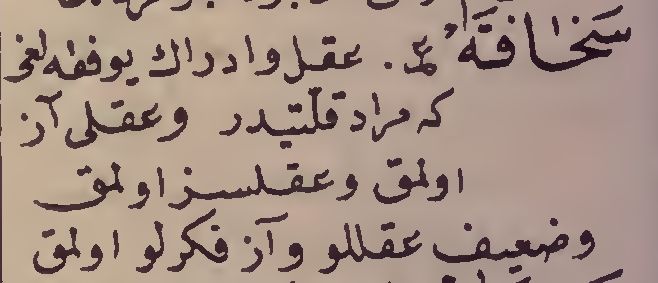 سَخَافَةٌ ع. عقل و ادراك يوفقه لغى
كه مراد قلّتيدر وعقلى آز
اولمق وعقلسز اولمق
وضعيف عقللو وآز فكرلو اولمق